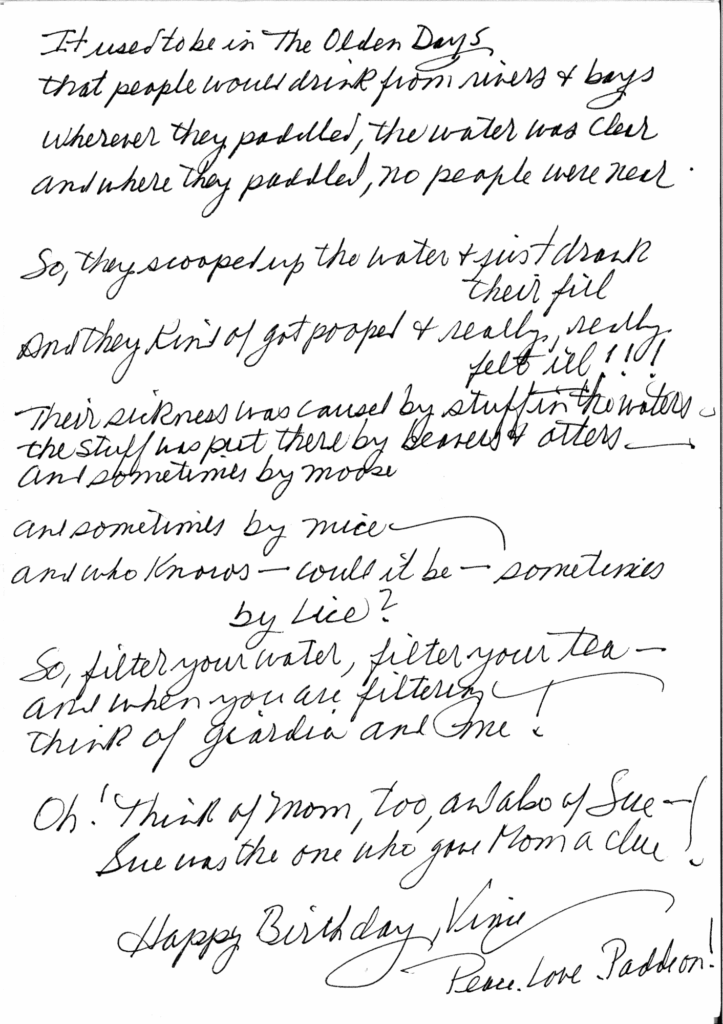 It used to be in The Olden Days
that people would drink from rivers & bays
wherever they paddled, the water was clear
and where they paddled, no people were near.
So, they scooped up the water & just drank
their fill
And they Kind of got pooped & really, really
felt ill!!!
Their sickness was caused by stuff in the waters
the stuff was put there by beavers & otters
and sometimes by moose
and sometimes by mice
and who Knows - could it be - sometimes
by Lice?
So, filter your water, filter your tea -
and when you are filtering
think of giardia and me!
Oh! Think of Mom, too, and also of Sue -
Sue was the one who gave Mom a clue!
Happy Birthday,
Peace. Love.